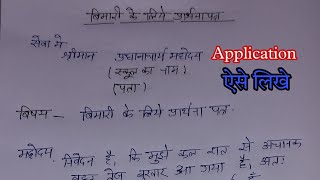 बिमारी के लिये प्रार्थनापत्र
सेवा मे
श्रीमान प्रधानाचार्य महोदय
Application
(स्कूल का नाम)
(पता)
ऐसे लिखे
विषय - बिमारी के लिये प्रार्थना पत्र
महोदय
निवेदन है, कि मुझे कल रात से अचानक
बहुत तेज बुखार आ गया है, अतः